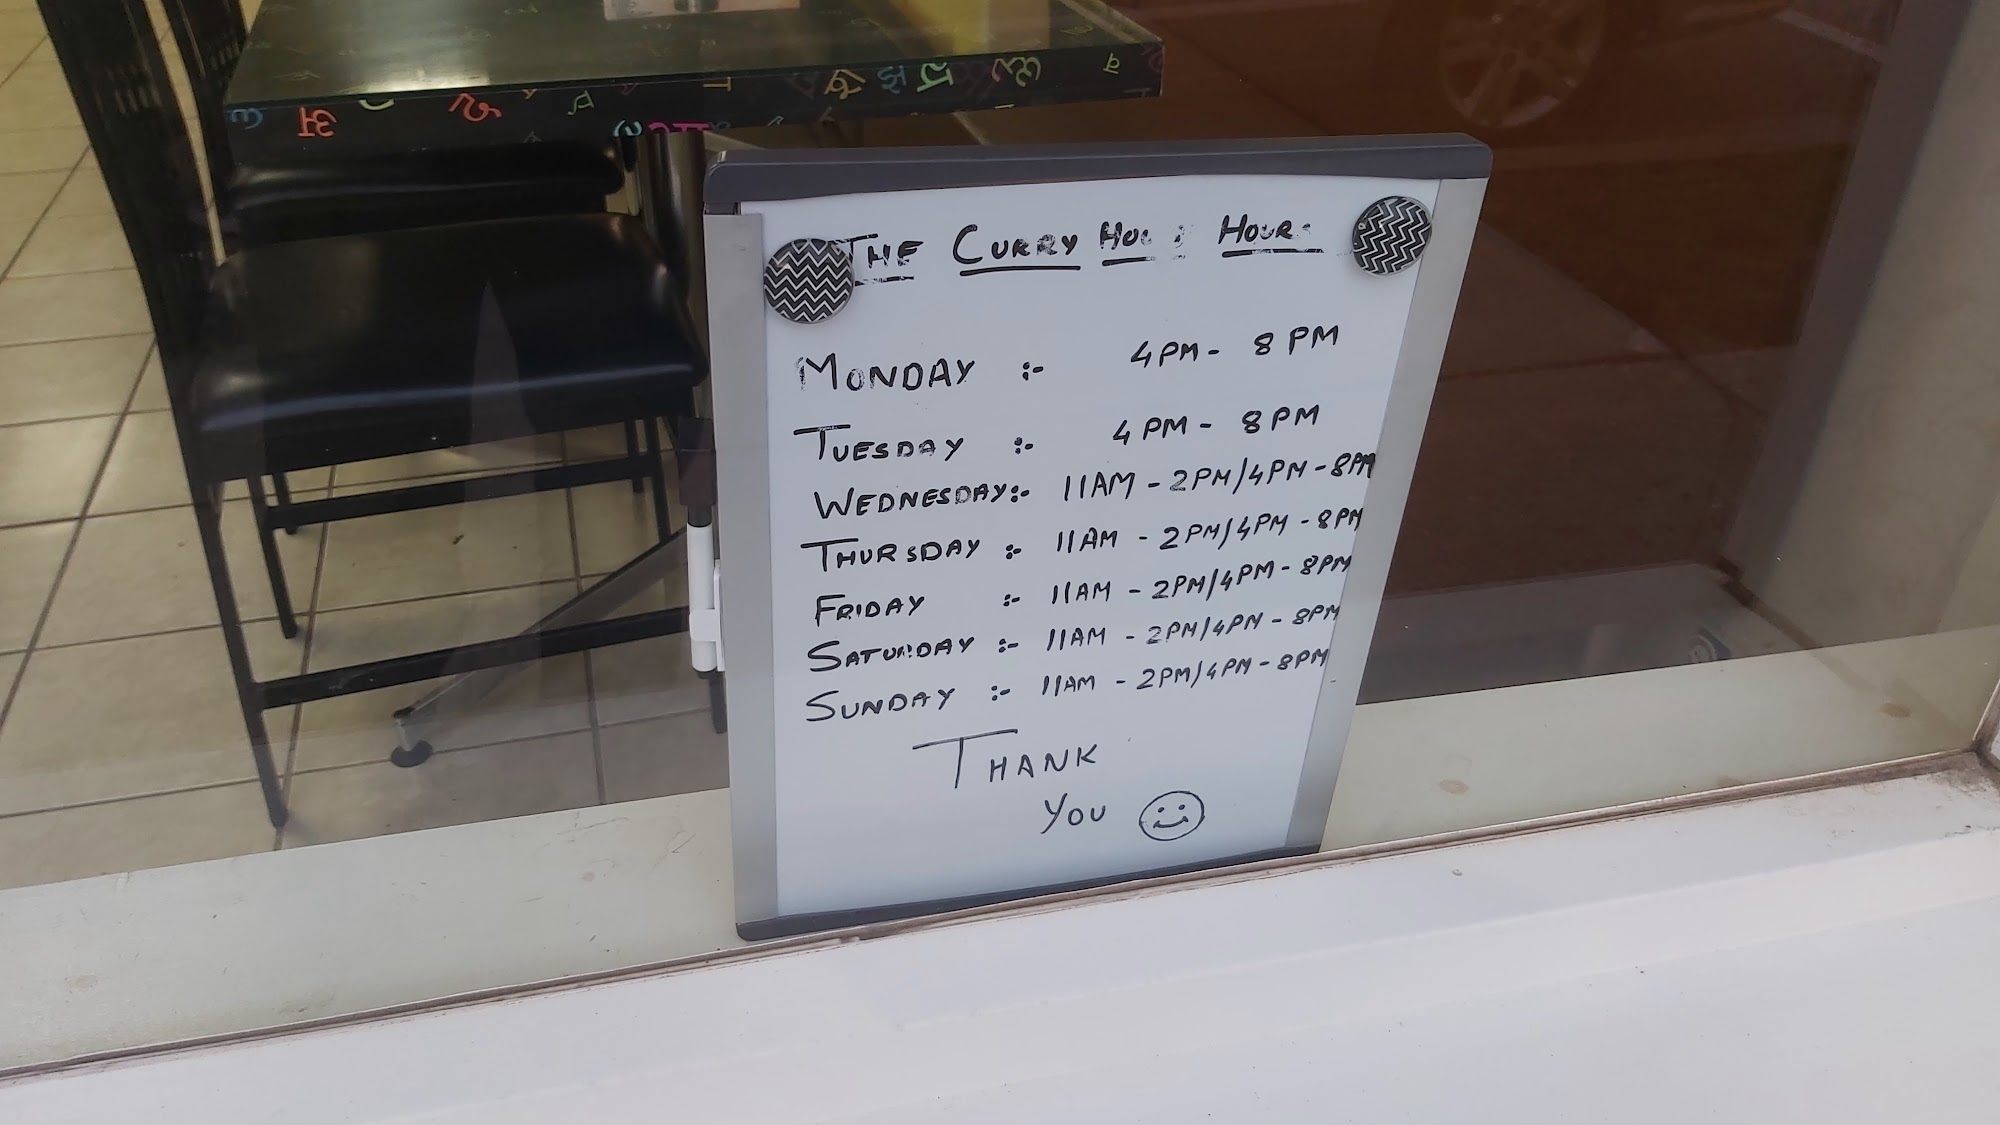 THE CURRY HOUR
MONDAY :- 4PM - 8PM
TUESDAY :- 4PM - 8PM
WEDNESDAY:- 11AM - 2PM/4PM - 8PM
THURSDAY :- 11AM - 2PM/4PM - 8PM
FRIDAY :- 11AM - 2PM/4PM - 8PM
SATURDAY :- 11AM - 2PM/4PM - 8PM
SUNDAY :- 11AM - 2PM/4PM - 8PM
THANK
YOU